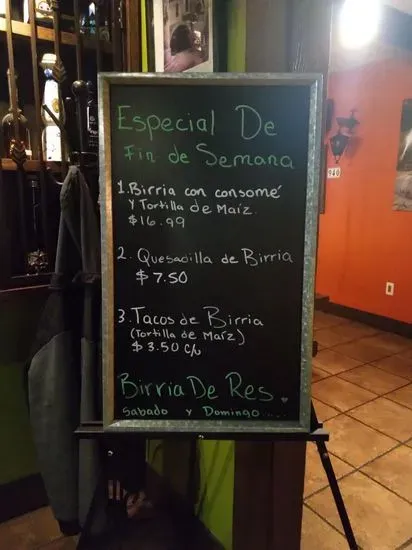 Especial De
Fin de Semana
1. Birria con consomé
y Tortilla de Maíz.
$16.99
2. Quesadilla de Birria
$7.50
3. Tacos de Birria
(Tortilla de Maíz)
$3.50 c/u
Birria De Res.
Sabado y Domingo.....
940